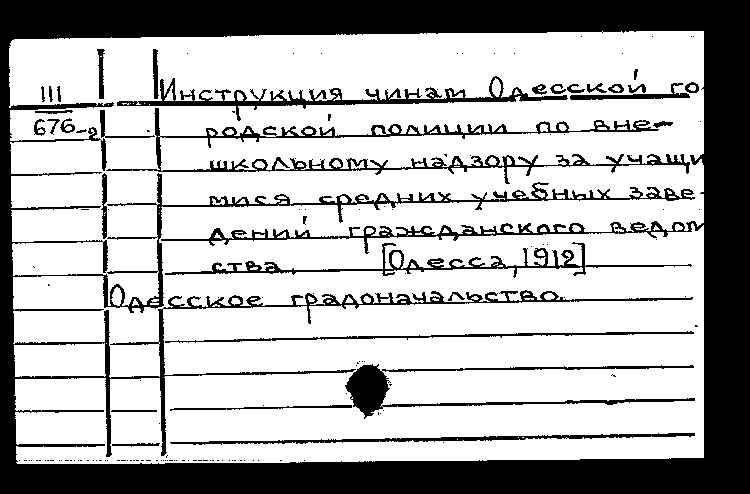 III
676-2
Инструкция чинам Одесской го-
родской полиции по вне-
школьному надзору за учащи
мися средних учебных заве-
дений гражданского ведом
ства. [Одесса, 1912]
Одесское градоначальство.